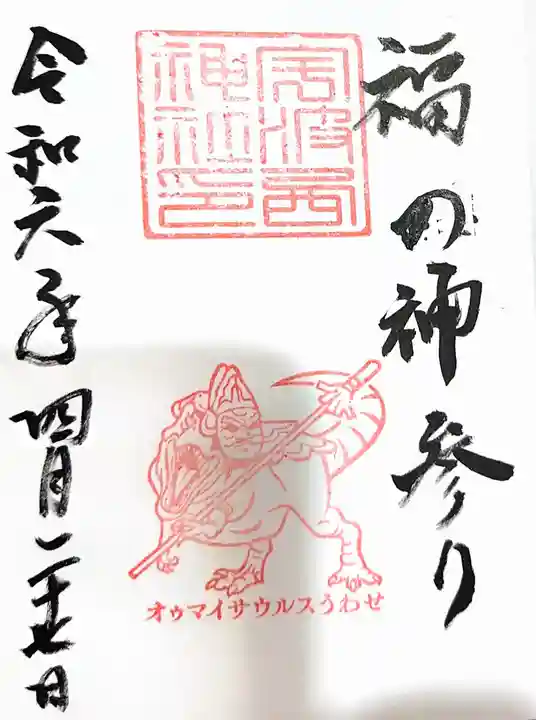 福の神参り
宇波西
神社印
オゥマイサウルスうわせ
令和六年四月二十七日